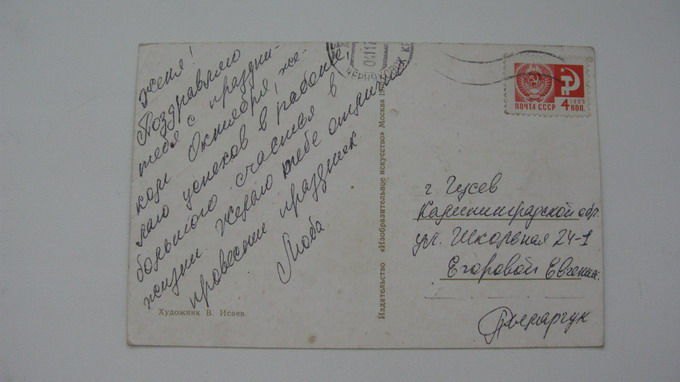 Женя!
Поздравляю
тебя с праздни-
ком Октября, же-
лаю успехов в работе,
большого счастья в
жизни. Желаю тебе отлично
провести праздник
Люба
Художник В. Исаев.
Издательство «Изобразительное искусство» Москва
ПОЧТА СССР
4 КОП.
г. Гусев
Калининградской обл.
ул. Школьная 24-1
Егоровой Евгении